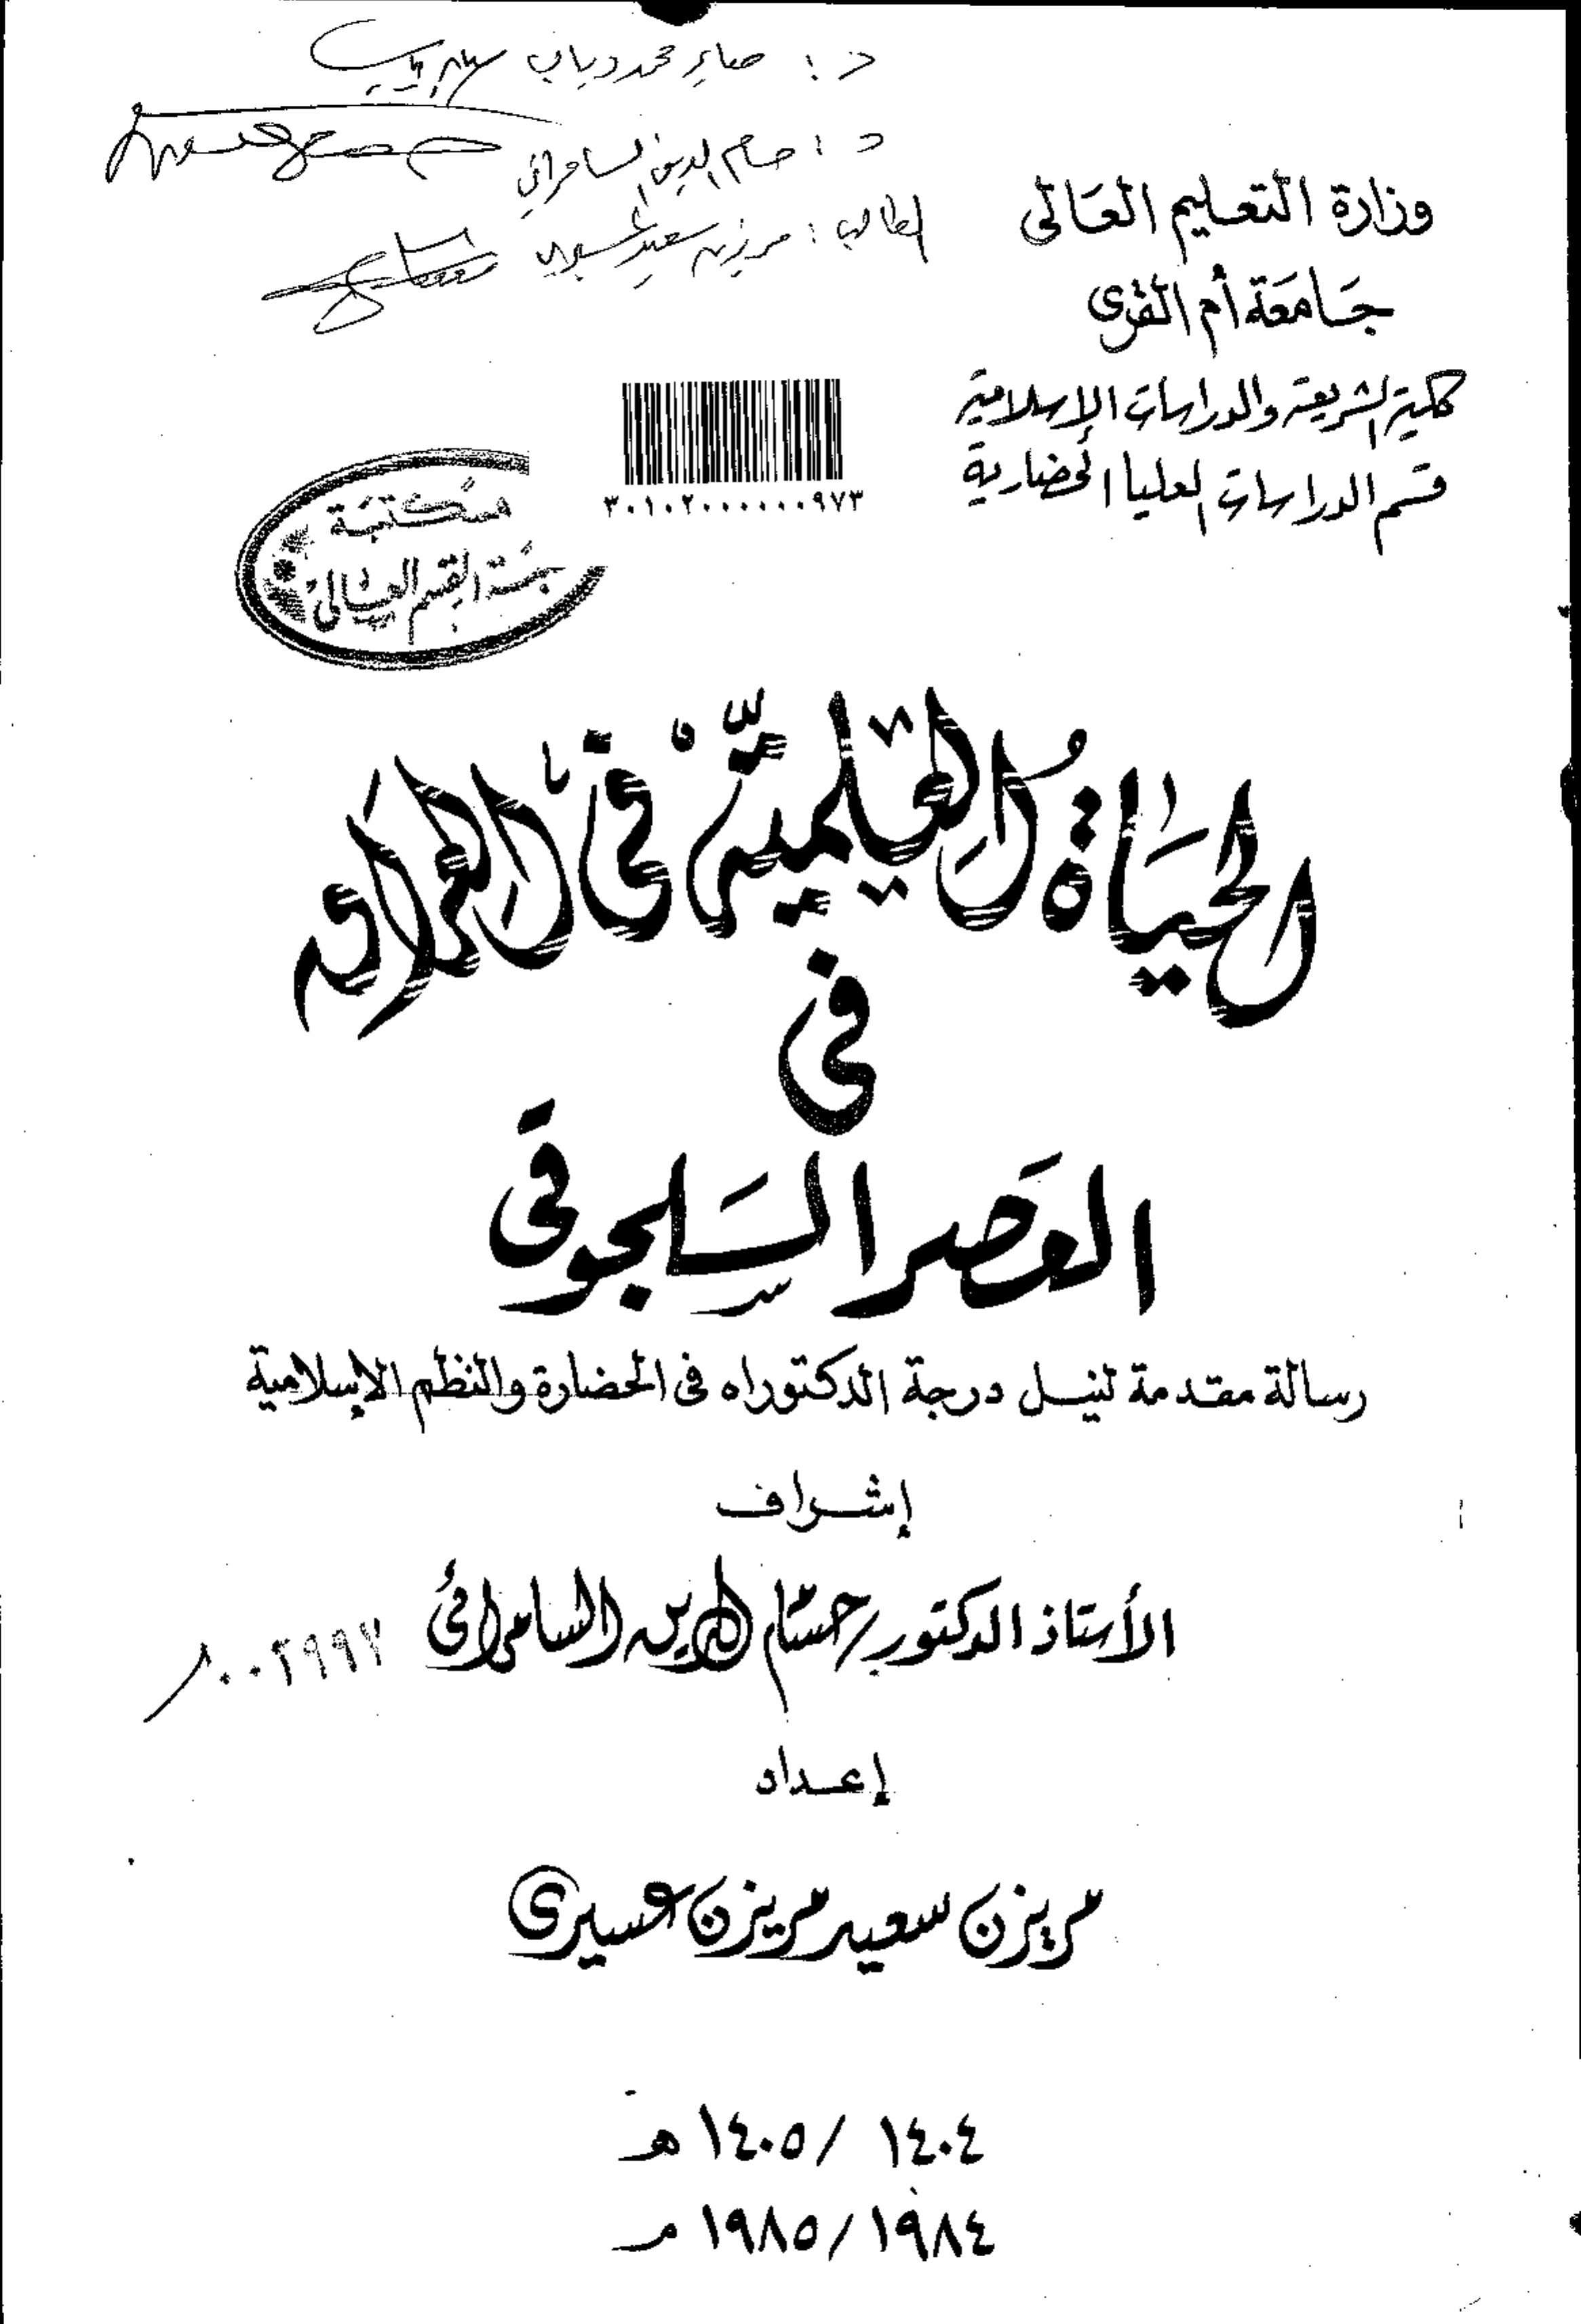 د : صابر محمد دياب
د : حسام الدين السامرائي
الطالب : مريزن سعيد عسيري
وزارة التعليم العالى
جامعة أم القرى
كلية الشريعة والدراسات الإسلامية
قسم الدراسات العليا الحضارية
٣٠١٠٢٠٠٠٠٠٠٩٧٣
مكتبة
القسم
الحَيَاةُ العِلميَّة في العِراق
فى
العصر السَّلجوقى
رسالة مقدمة لنيل درجة الدكتوراه فى الحضارة والنظم الإسلامية
إشراف
الأستاذ الدكتور / حسام الدين السامرائى
٠٠٢٩٩٧
إعداد
مريزن سعيد مريزن عسيرى
١٤٠٤ / ١٤٠٥ هـ
١٩٨٤ / ١٩٨٥ م